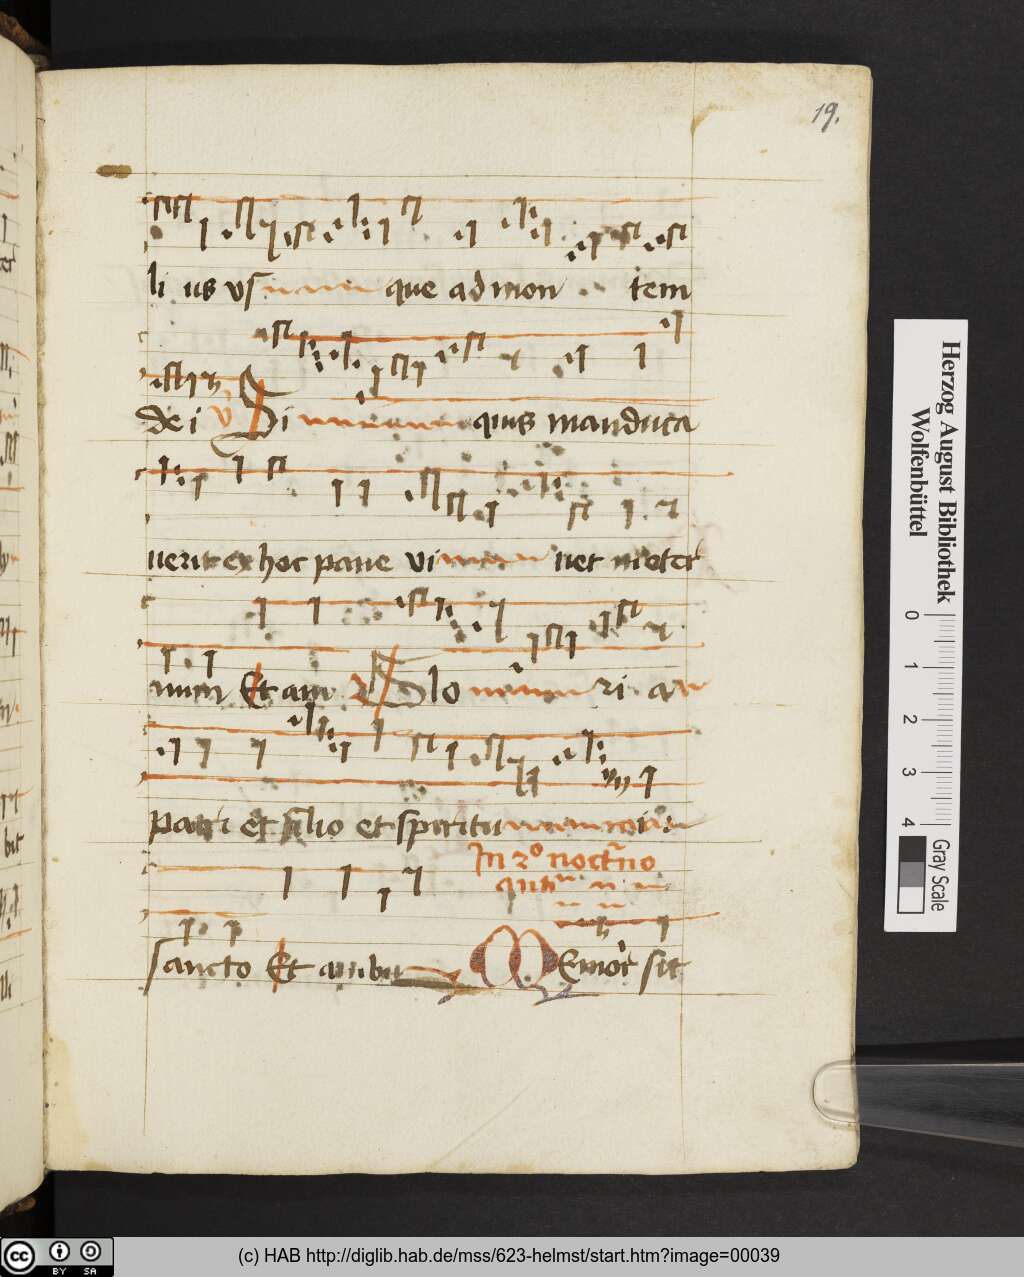 19.
li us vs que ad mon tem
de i V Si quis manduca
uerit ex hoc pane vi uet in eter
num Et am Glo ri a
patri et filio et spiritu
In 2o noct̄no
an̄
sancto Et ambu Memor sit
Herzog August Bibliothek
Wolfenbüttel
0 1 2 3 4
Gray Scale
cc BY SA
(c) HAB http://diglib.hab.de/mss/623-helmst/start.htm?image=00039